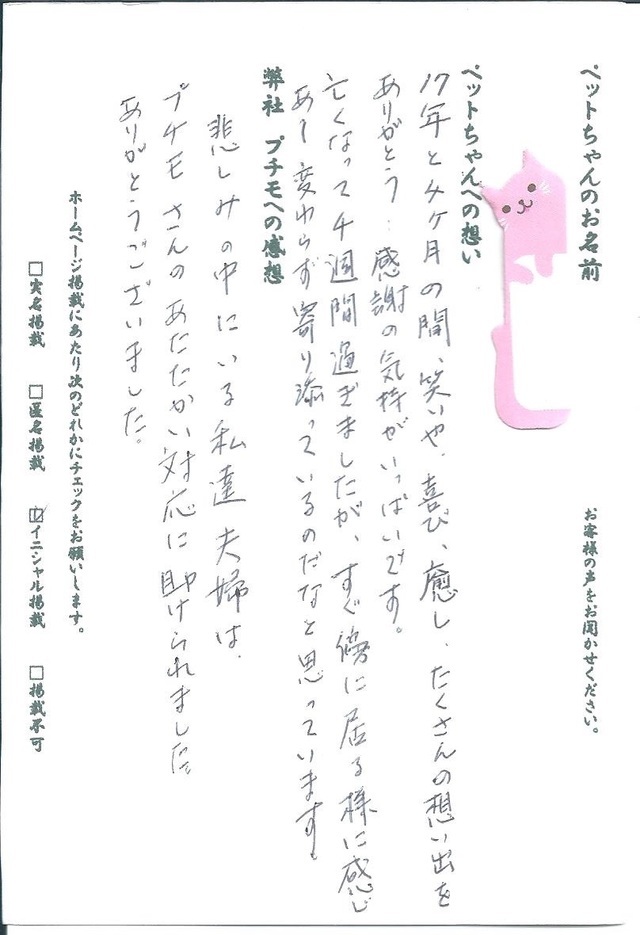 ペットちゃんのお名前
お客様の声をお聞かせください。
ペットちゃんへの想い
17年と4ヶ月の間、笑いや、喜び、癒し、たくさんの想い出を
ありがとう：感謝の気持がいっぱいです。
亡くなって4週間過ぎましたが、すぐ傍に居る様に感じ
あー変わらず寄り添っているのだなと思っています。
弊社　プチモへの感想
悲しみの中にいる私達夫婦は、
プチモさんのあたたかい対応に助けられました。
ありがとうございました。
ホームページ掲載にあたり次のどれかにチェックをお願いします。
□実名掲載　□匿名掲載　☑イニシャル掲載　□掲載不可